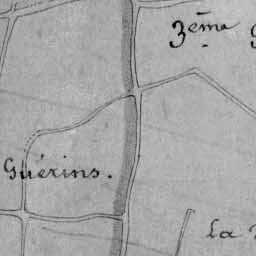 3ème
Guérins.
La